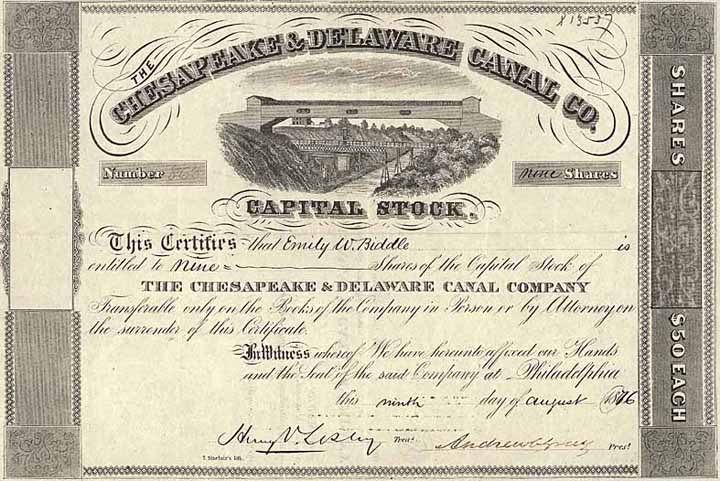 THE
CHESAPEAKE & DELAWARE CANAL CO.
Number
nine Shares
CAPITAL STOCK.
This Certifies that Emily W. Biddle is
entitled to Nine Shares of the Capital Stock of
THE CHESAPEAKE & DELAWARE CANAL COMPANY
Transferable only on the Books of the Company in Person or by Attorney on
the surrender of this Certificate.
In Witness whereof We have hereunto affixed our Hands
and the Seal of the said Company at Philadelphia
this ninth day of august 1876
Henry V. Lesley Treasr.
Andrew C. Gray Prest.
T. Sinclair's lith.
SHARES
$50 EACH